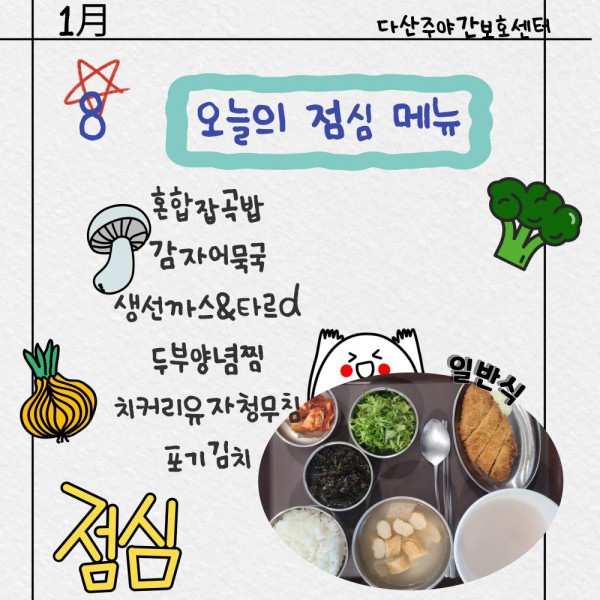 1月
다산주야간보호센터
8
오늘의 점심 메뉴
혼합잡곡밥
감자어묵국
생선까스&타르d
두부양념찜
치커리유자청무침
포기김치
일반식
점심